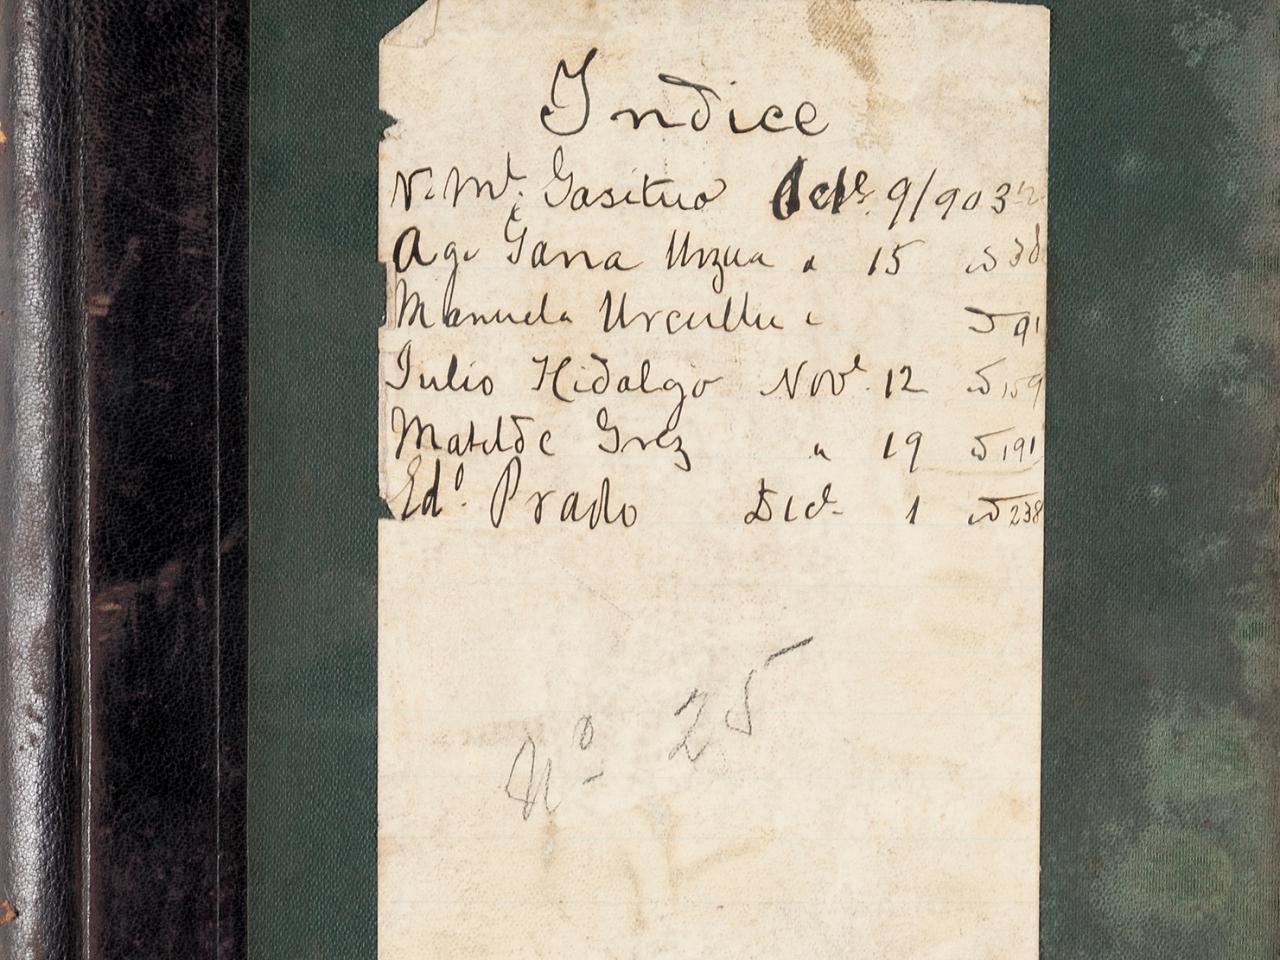 Indice
N. Mt. Gasitua Octe. 9/903
Ag. Gana Urzua " 15
Manuela Urcullu " 91
Julio Hidalgo Nove. 12 159
Matilde Grez " 19 191
Edo. Prado Dice. 1 238
No 25